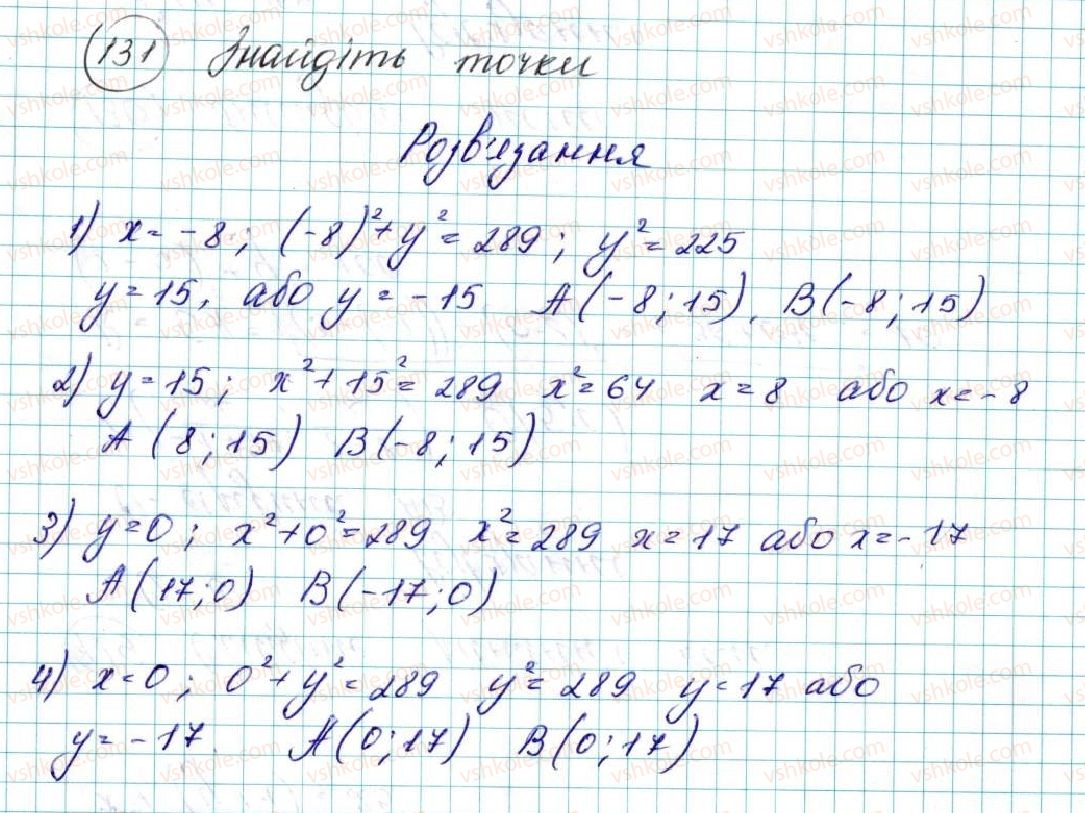 131 Знайдіть точки
Розв'язання
1) x = -8; (-8)² + y² = 289; y² = 225
y = 15, або y = -15 A(-8; 15), B(-8; 15)
2) y = 15; x² + 15² = 289 x² = 64 x = 8 або x = -8
A(8; 15) B(-8; 15)
3) y = 0; x² + 0² = 289 x² = 289 x = 17 або x = -17
A(17; 0) B(-17; 0)
4) x = 0; 0² + y² = 289 y² = 289 y = 17 або
y = -17. A(0; 17) B(0; 17)